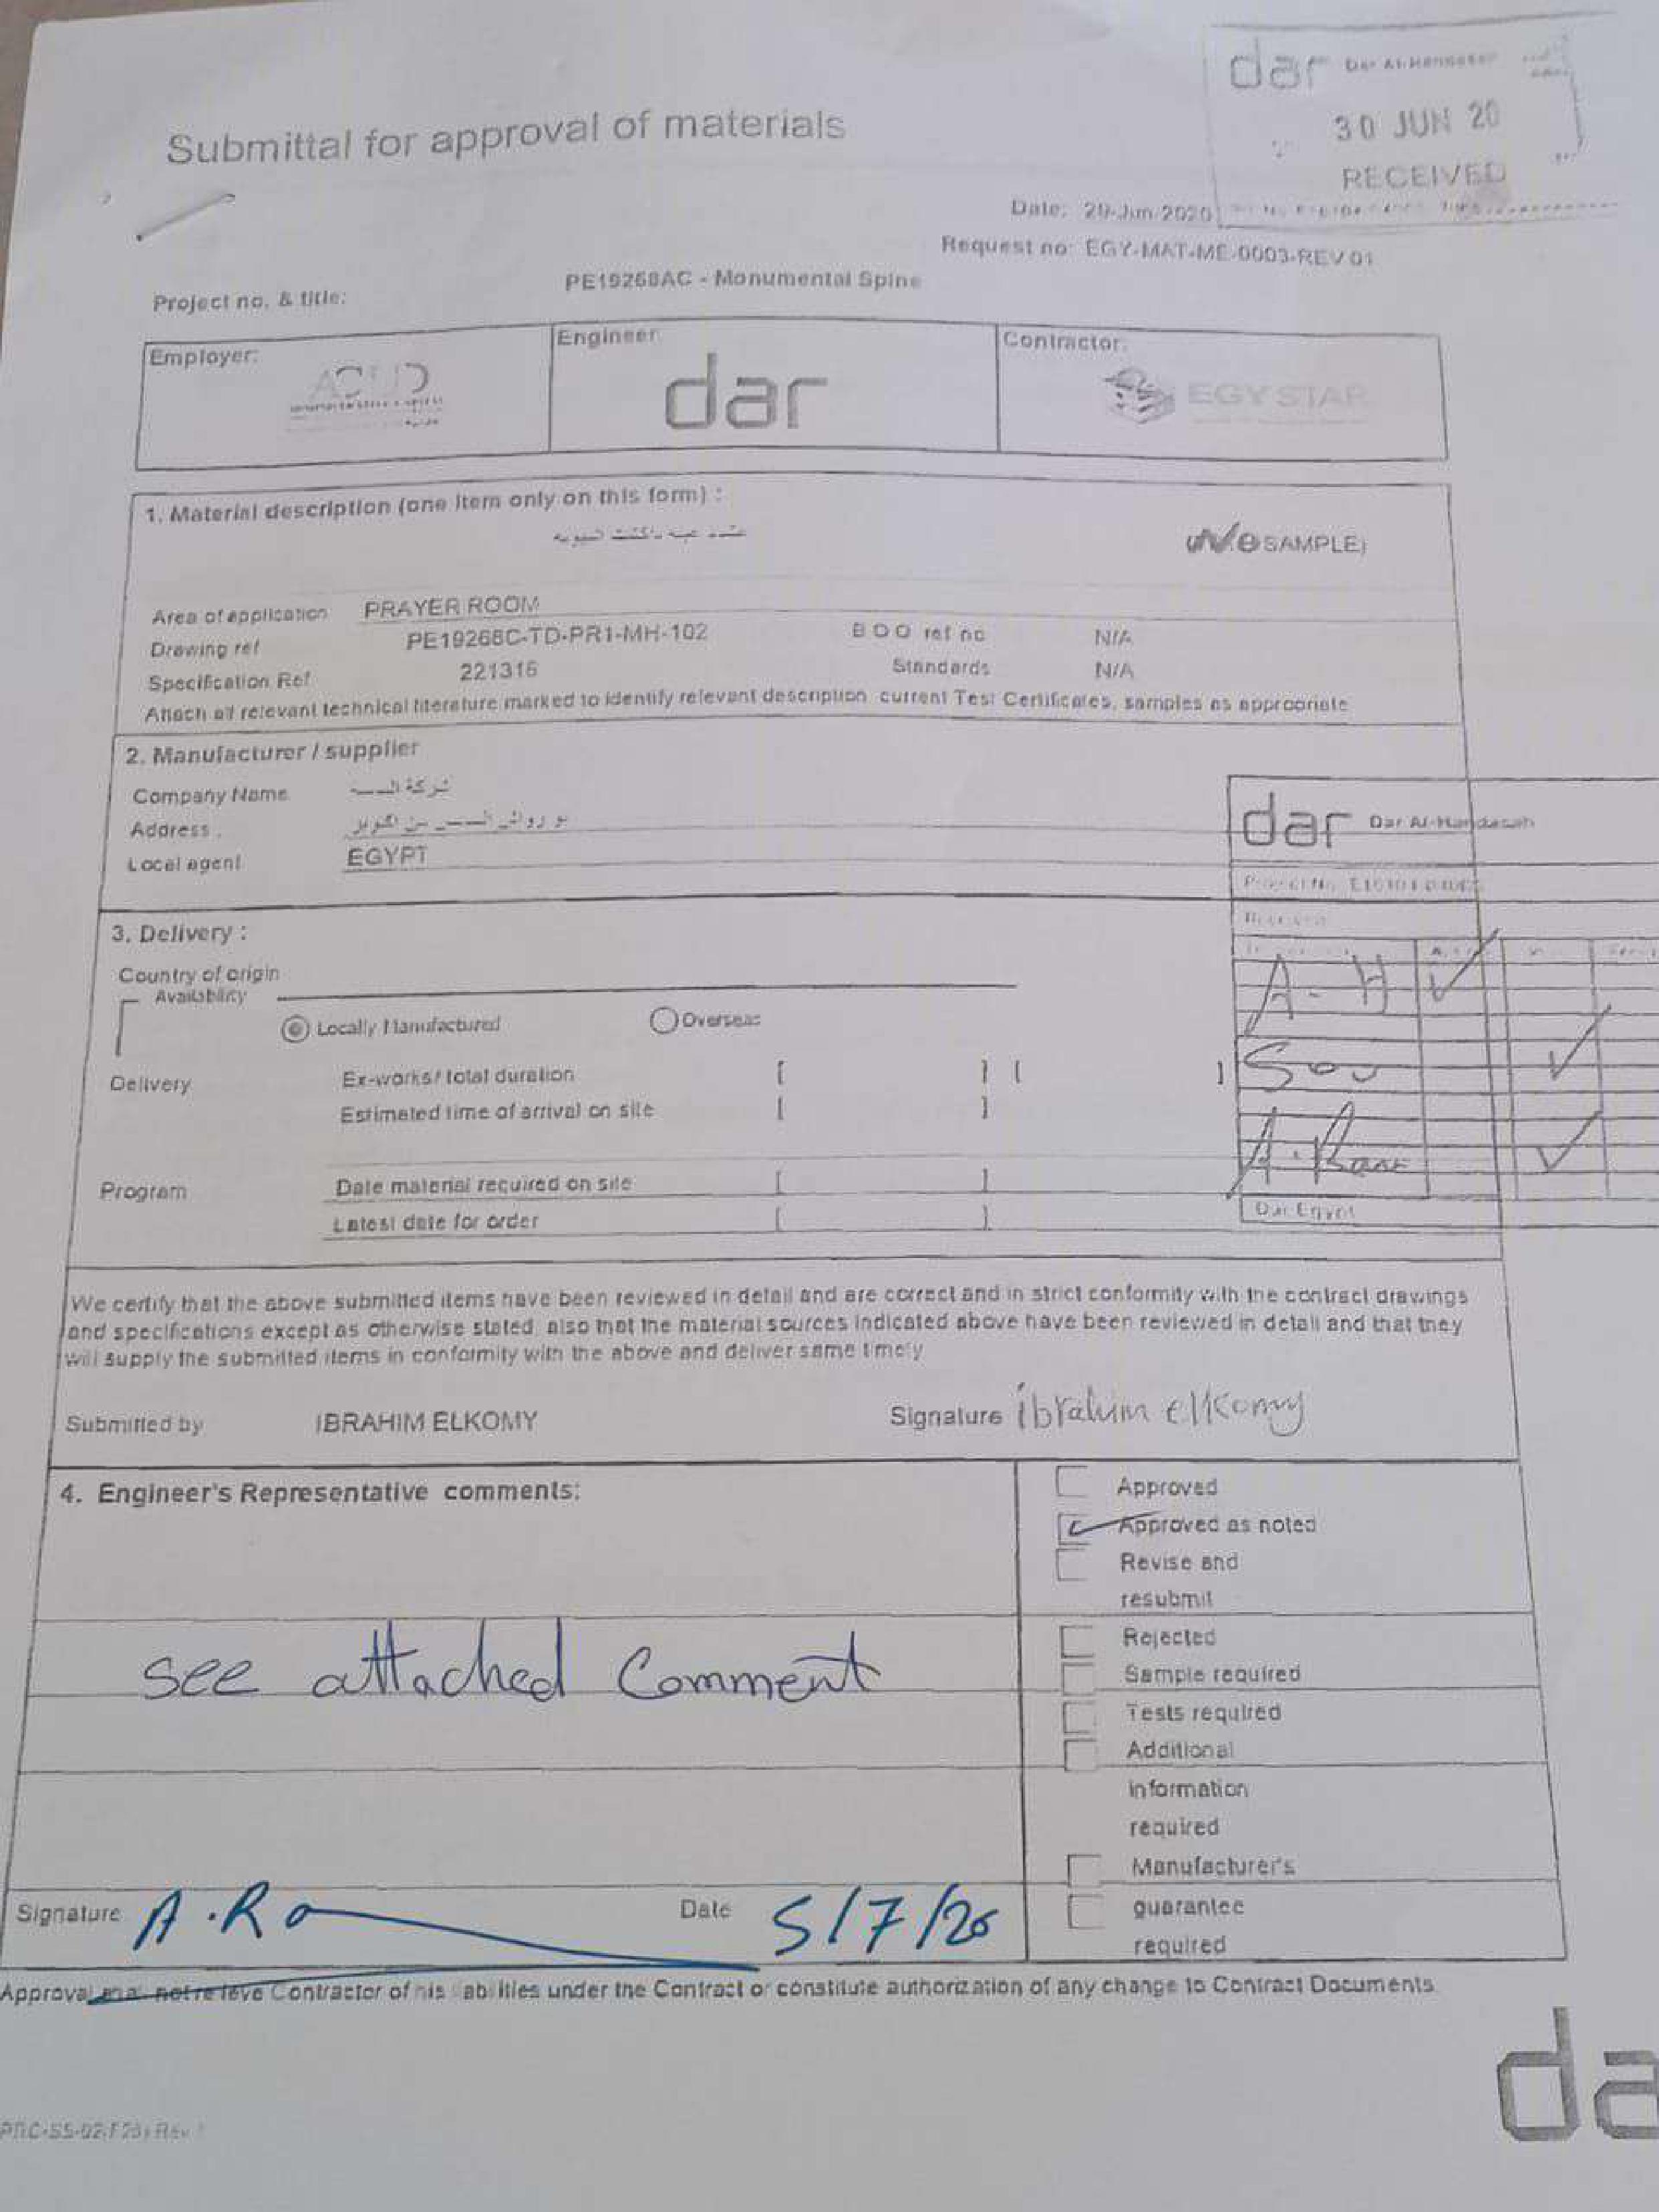 dar
30 JUN 20
RECEIVED
Submittal for approval of materials
Date: 29-Jun-2020
Request no: EGY-MAT-ME-0003-REV 01
Project no. & title:
PE19268AC - Monumental Spine
Employer:
Engineer
Contractor:
dar
EGY STAR
1. Material description (one item only on this form) :
SAMPLE)
Area of application PRAYER ROOM
Drawing ref PE19268C-TD-PR1-MH-102 BOQ ref no N/A
Specification Ref 221316 Standards N/A
Attach all relevant technical literature marked to identify relevant description current Test Certificates, samples as appropriate
2. Manufacturer / supplier
Company Name شركة
Address
Local agent EGYPT
dar Dar Al-Handasah
3. Delivery :
Country of origin
Availability
Locally Manufactured Overseas
A. H
Delivery Ex-works/ total duration [ ] [ ]
Estimated time of arrival on site [ ]
Program Date material required on site [ ]
Latest date for order [ ]
Dar Egypt
We certify that the above submitted items have been reviewed in detail and are correct and in strict conformity with the contract drawings
and specifications except as otherwise stated, also that the material sources indicated above have been reviewed in detail and that they
will supply the submitted items in conformity with the above and deliver same timely
Submitted by IBRAHIM ELKOMY Signature ibrahim elkomy
4. Engineer's Representative comments:
Approved
Approved as noted
Revise and
resubmit
Rejected
see attached Comment
Sample required
Tests required
Additional
information
required
Manufacturer's
guarantee
required
Signature A.Ra Date 5/7/20
Approval Contractor of his liabilities under the Contract or constitute authorization of any change to Contract Documents.
da